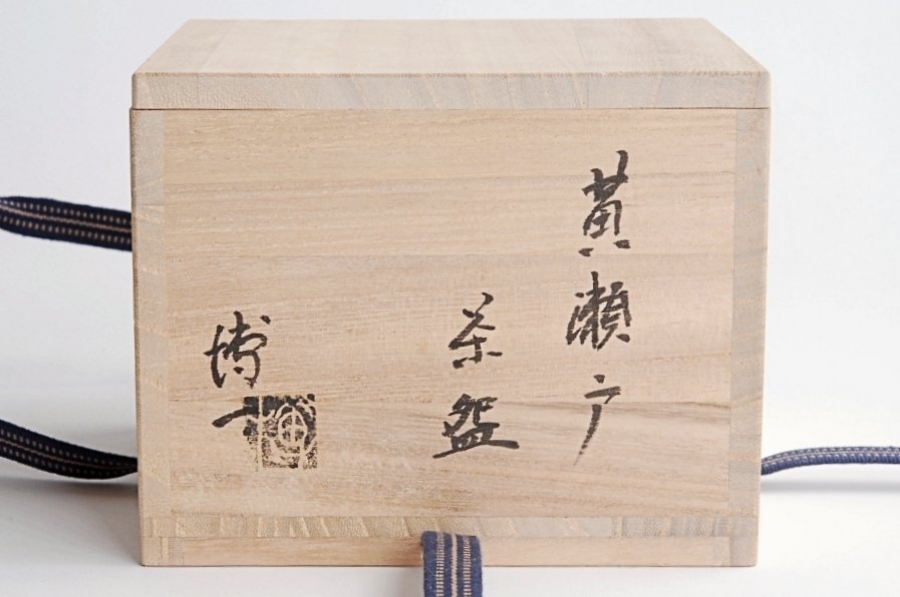 黄瀬戸
茶盌
博